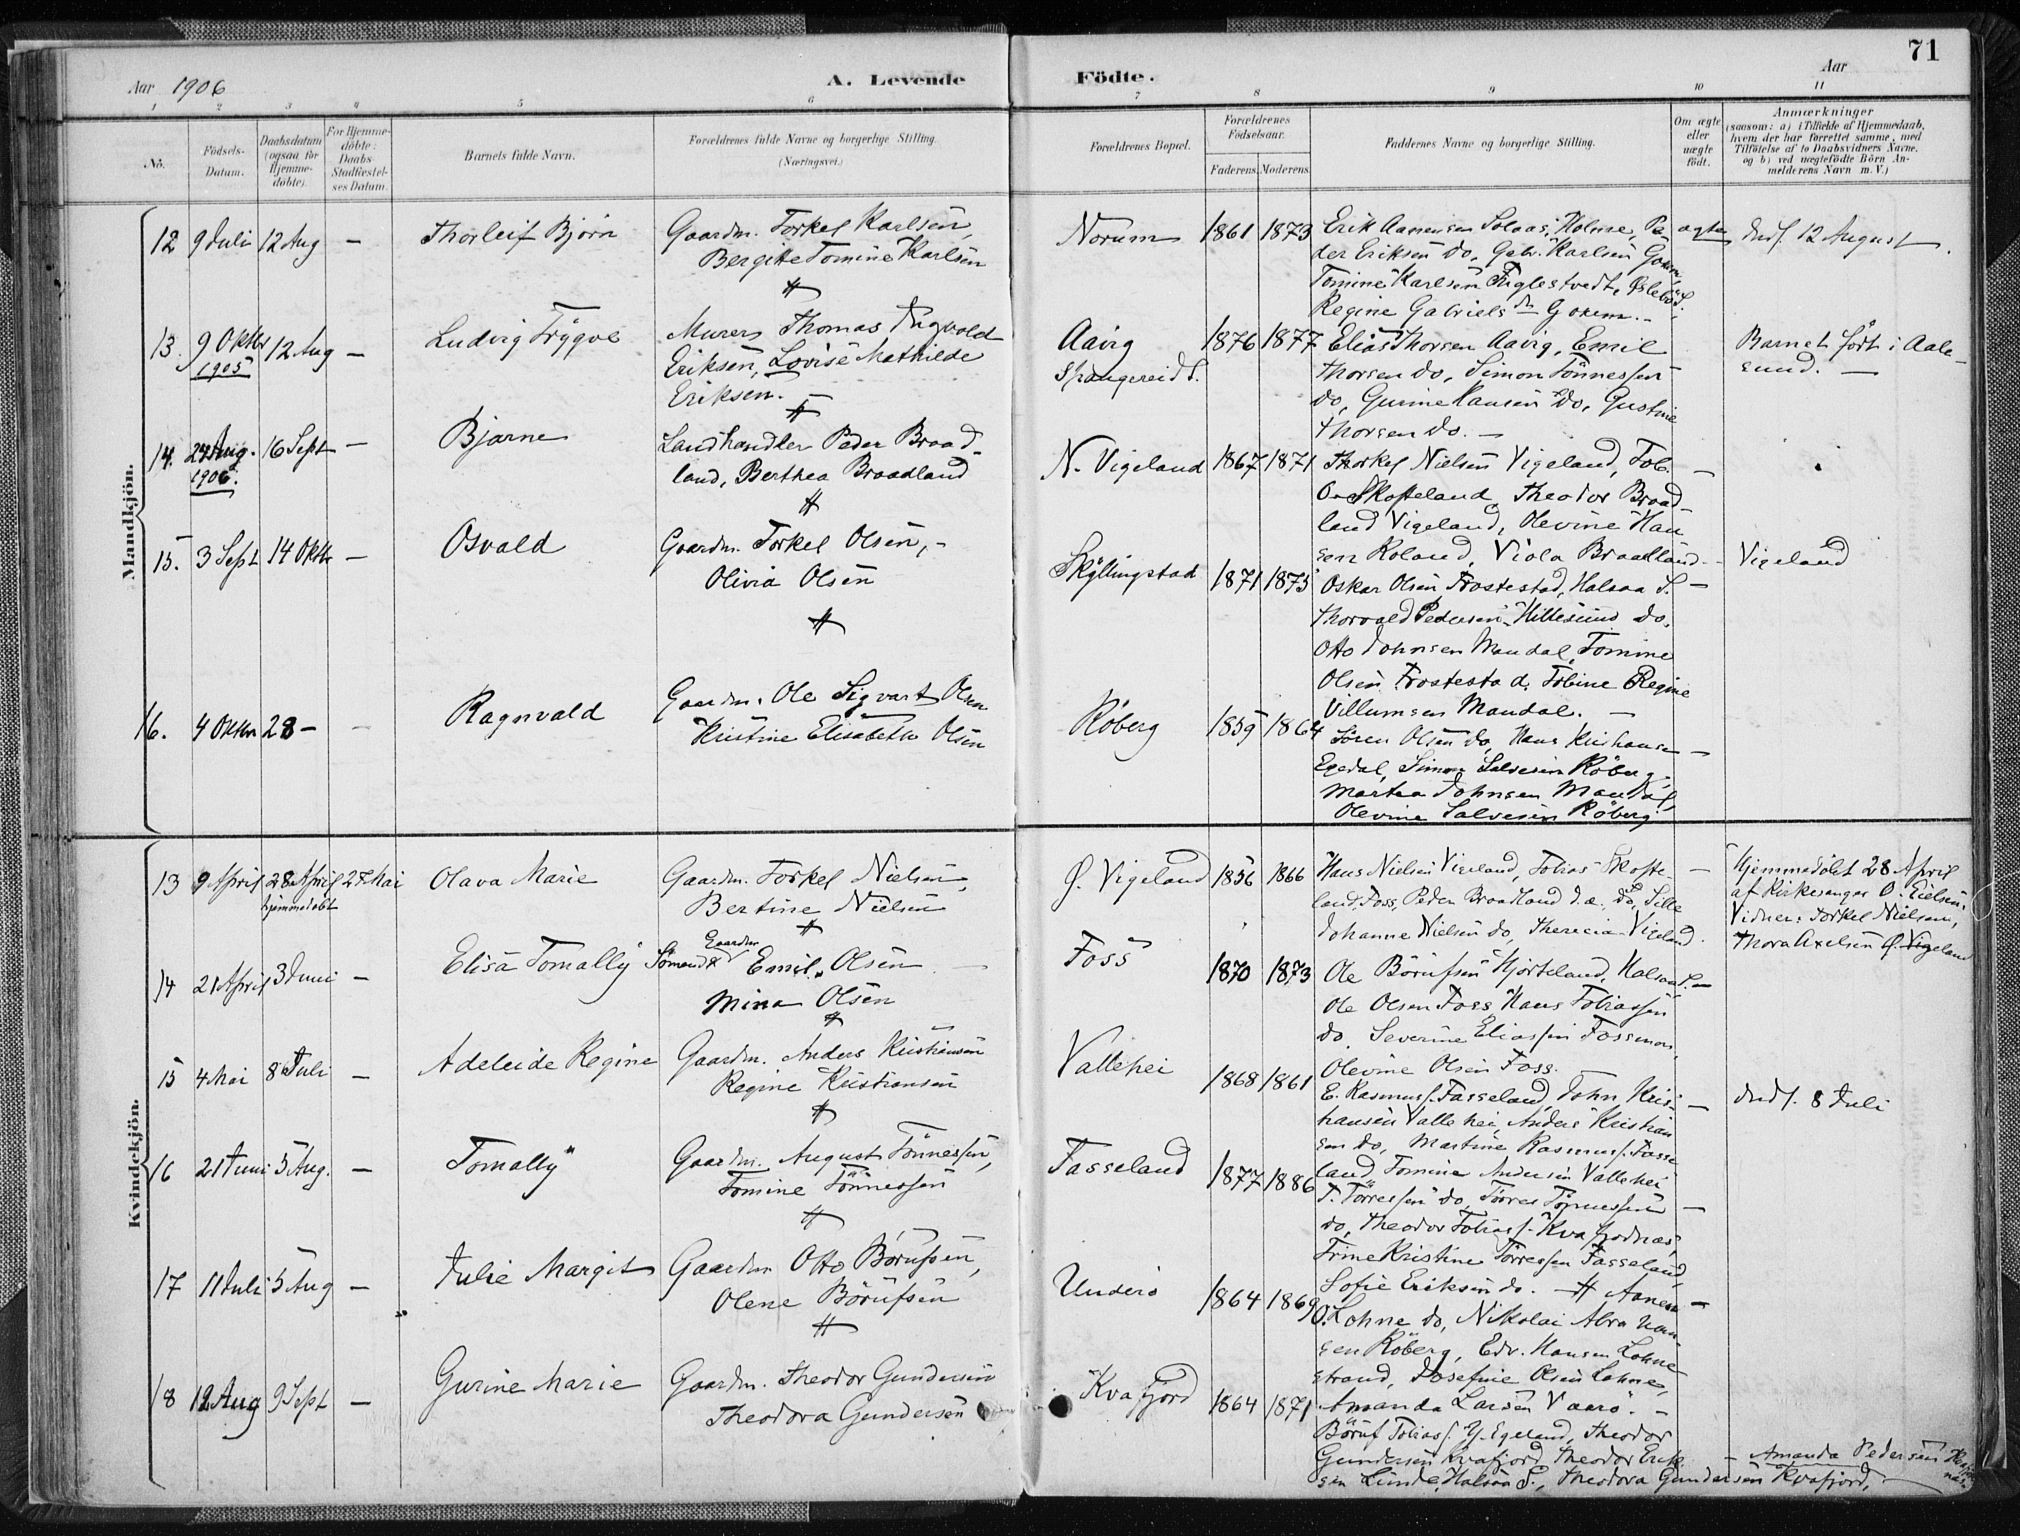 71
Aar 1906
A. Levende
Födte.
Aar
1 2 3 4 5 6 7 8 9 10 11
No.
Födsels-
Datum.
Daabsdatum
(ogsaa for
Hjemme-
döbte).
For Hjemme-
döbte:
Daabs-
Stadfæstel-
ses Datum.
Barnets fulde Navn.
Forældrenes fulde Navne og borgerlige Stilling.
(Næringsvei.)
Forældrenes Bopæl.
Forældrenes
Födselsaar.
Faderens. Moderens.
Faddernes Navne og borgerlige Stilling.
Om ægte
eller
uægte
født.
Anmærkninger
(saasom: a) i Tilfælde af Hjemmedaab,
hvem der har forrettet samme, med
Tilföielse af to Daabsvidners Navne,
og b) ved uægtefödte Börn An-
melderens Navn m. V.)
Mandkjön.
12 9 Juli 12 Aug —
Thorleif Bjørn
Gaardm. Torkel Karlsen,
Bergitte Tomine Karlsen
Norum 1861 1873
Erik Aanensen Solaas, Holme, Pe
der Eriksen do, Gabr. Karlsen
Tomine Karlsen Fuglestvedt, Øslebö S.
Regine Gabriels
ægte
Inds. 12 August.
13. 9 Oktbr
1905
12 Aug —
Ludvig Trygve
Murer Thomas Ingvald
Eriksen, Lovise Mathilde
Eriksen. —
Aavig
Spangereid S.
1876 1877
Elias Thorsen Aavig, Emil
Thorsen do, Simon Tönnessen
do, Gunne Hansen do, Gustine
Thorsen do. —
Barnet født i Aale-
sund. —
14. 24 Aug.
1906.
16 Sept —
Bjarne
Landhandler Peder Braad-
land, Berthea Braadland
N. Vigeland 1867 1871
Thorkel Nielsen Vigeland, Tob.
O. Skofteland, Theodor Braad-
land Vigeland, Olevine Han
sen Roland, Viola Braadland —
Vigeland
15. 3 Sept 14 Oktbr —
Osvald
Gaardm. Torkel Olsen, -
Olivia Olsen
Skjllingstad 1871 1875
Oskar Olsen Trostestad, Halsaa S. —
Thorvald Pedersen Hillesund do.
Otto Johnsen Mandal, Tomine
Olsen Trostestad, Tobine Regine
Villumsen Mandal. —
16. 4 Oktbr 28 — —
Ragnvald
Gaardm. Ole Sigvart Olsen
Kristine Elisabeth Olsen
Röberg 1859 1864
Sören Olsen do, Hans Kristiansen —
Egedal, Simon Salvesen Röberg,
Martea Johnsen Mandal,
Olevine Salvesen Röberg
Kvindekjön.
13 9 April 28 April
hjemmedöbt
27 Mai
Olava Marie
Gaardm. Torkel Nielsen,
Bertine Nielsen
Ö. Vigeland 1856 1866
Hans Nielsen Vigeland, Tobias Skofte-
land, Foss, Peder Braadland do, Sille
Johanne Nielsen do, Therecia Vigeland.
Hjemmedöbt 28 April
af Kirkesanger O. Eielsen.
Vidner: Torkel Nielsen,
Thora Axelsen Ö. Vigeland
14 21 April 3 Juni —
Elisa Tomally
Gaardm
Sömand Emil Olsen
Mina Olsen
Foss 1870 1873
Ole Börufsen Hjorteland, Halsaa S. —
Ole Olsen Foss Hans Tobiassen
do, Severine Eliassen Fossmon,
Olevine Olsen Foss.
15 4 Mai 8 Juli —
Adeleide Regine
Gaardm. Anders Kristiansen
Regine Kristiansen
Vallehei 1868 1861
E. Rasmuss. Fasseland, John Kris-
tiansen Vallehei, Anders Kristian
sen do, Martine Rasmuss. Fasse
land, Tomine Andersen Vallehei
Inds. 8 Juli
16 21 Juni 5 Aug. —
Tomally
Gaardm. August Tönnessen,
Tomine Tönnessen
Fasseland 1877 1886
T. Törressen do, Törres Tönnessen —
do, Theodor Tobiass. Kvafjordnæs,
Trine Kristine Törressen Fasseland,
Sofie Eriksen do.
17 11 Juli 5 Aug —
Julie Margit
Gaardm Otto Börufsen,
Olene Börufsen
Underö 1864 1869
Aanen —
O. Lohne do, Nikolai Abraham
sen Röberg, Edv. Hansen Lohne
strand, Josefine Olsen Lohne,
Amanda Larsen Vaarö. —
18 12 Aug 9 Sept —
Gurine Marie
Gaardm. Theodor Gundersen
Theodora Gundersen
Kvafjord 1864 1871
Böruf Tobiass. Y. Egeland, Theodor
Gundersen Kvafjord, Theodor Erik- —
sen Lunde, Halsaa S., Theodora Gundersen Kvafjord,
Amanda Pedersen